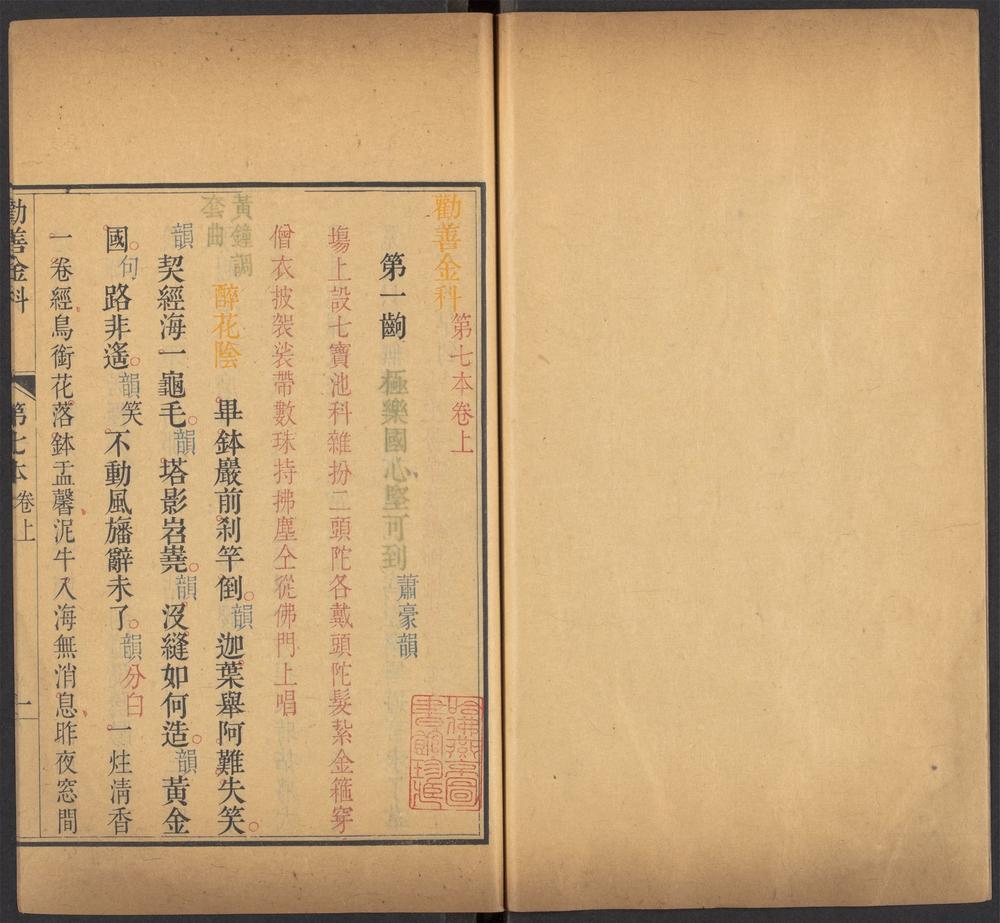 勸善金科第七本卷上
第一齣極樂國心堅可到蕭豪韻
塲上設七寶池科雜扮二頭陀各戴頭陀髮紮金箍穿
僧衣披袈裟帶數珠持拂塵仝從佛門上唱
黃鐘調
套曲
醉花陰畢鉢巖前刹竿倒韻迦葉舉阿難失笑
韻契經海一龜毛韻塔影岧嶤韻沒縫如何造韻黃金
國句路非遙韻笑不動風旛辭未了韻分白一炷淸香
一卷經鳥銜花落鉢盂馨泥牛入海無消息昨夜窓間
勸善金科
第七本卷上
一
哈佛燕京圖書館珍藏